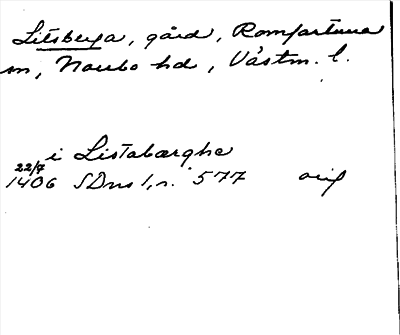 Litsberga, gård, Romfartuna
sn, Norrbo hd, Västm. l.
i Listabærghe
22/7
1406 SDns 1, n. 577 orig